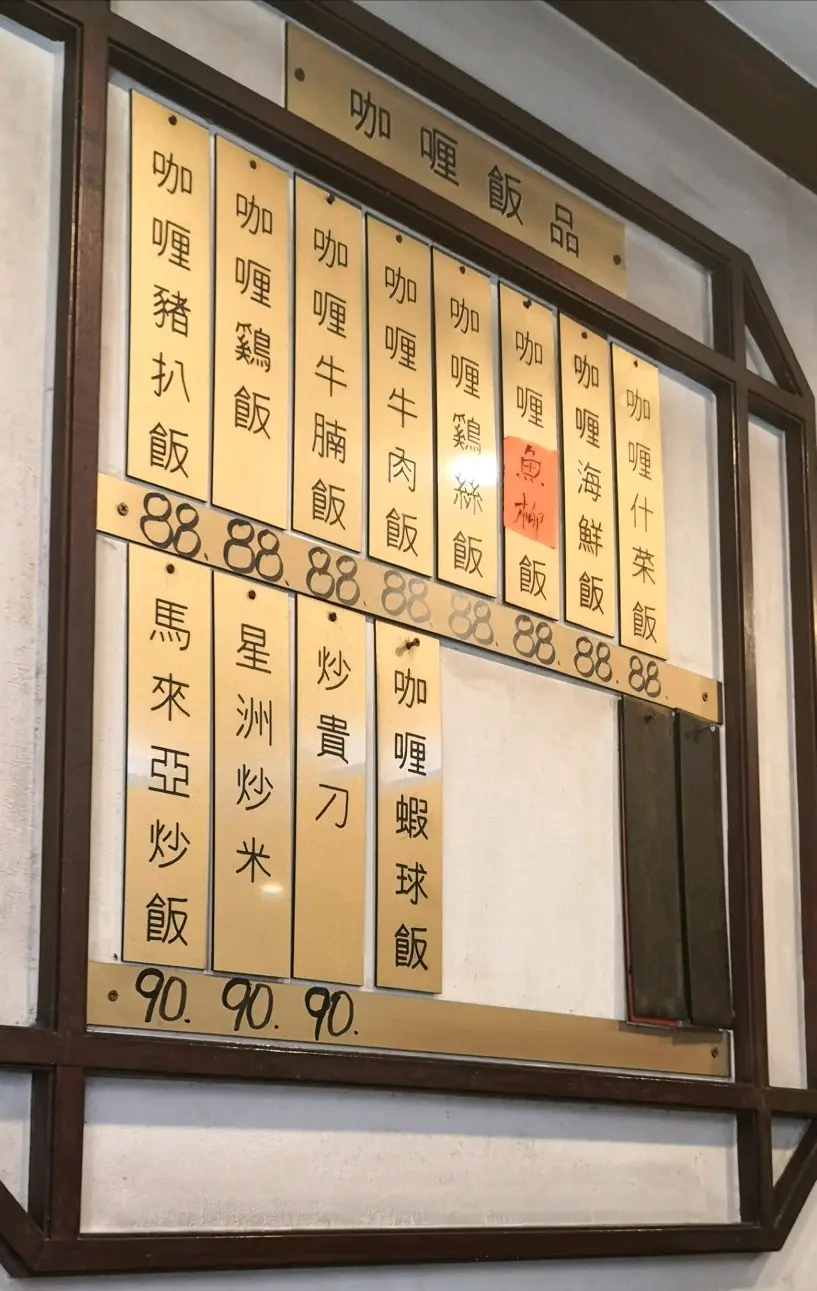 咖喱飯品
咖喱豬扒飯
咖喱鷄飯
咖喱牛腩飯
咖喱牛肉飯
咖喱鷄絲飯
咖喱魚柳飯
咖喱海鮮飯
咖喱什菜飯
88. 88. 88. 88. 88. 88. 88. 88.
馬來亞炒飯
星洲炒米
炒貴刀
咖喱蝦球飯
90. 90. 90.